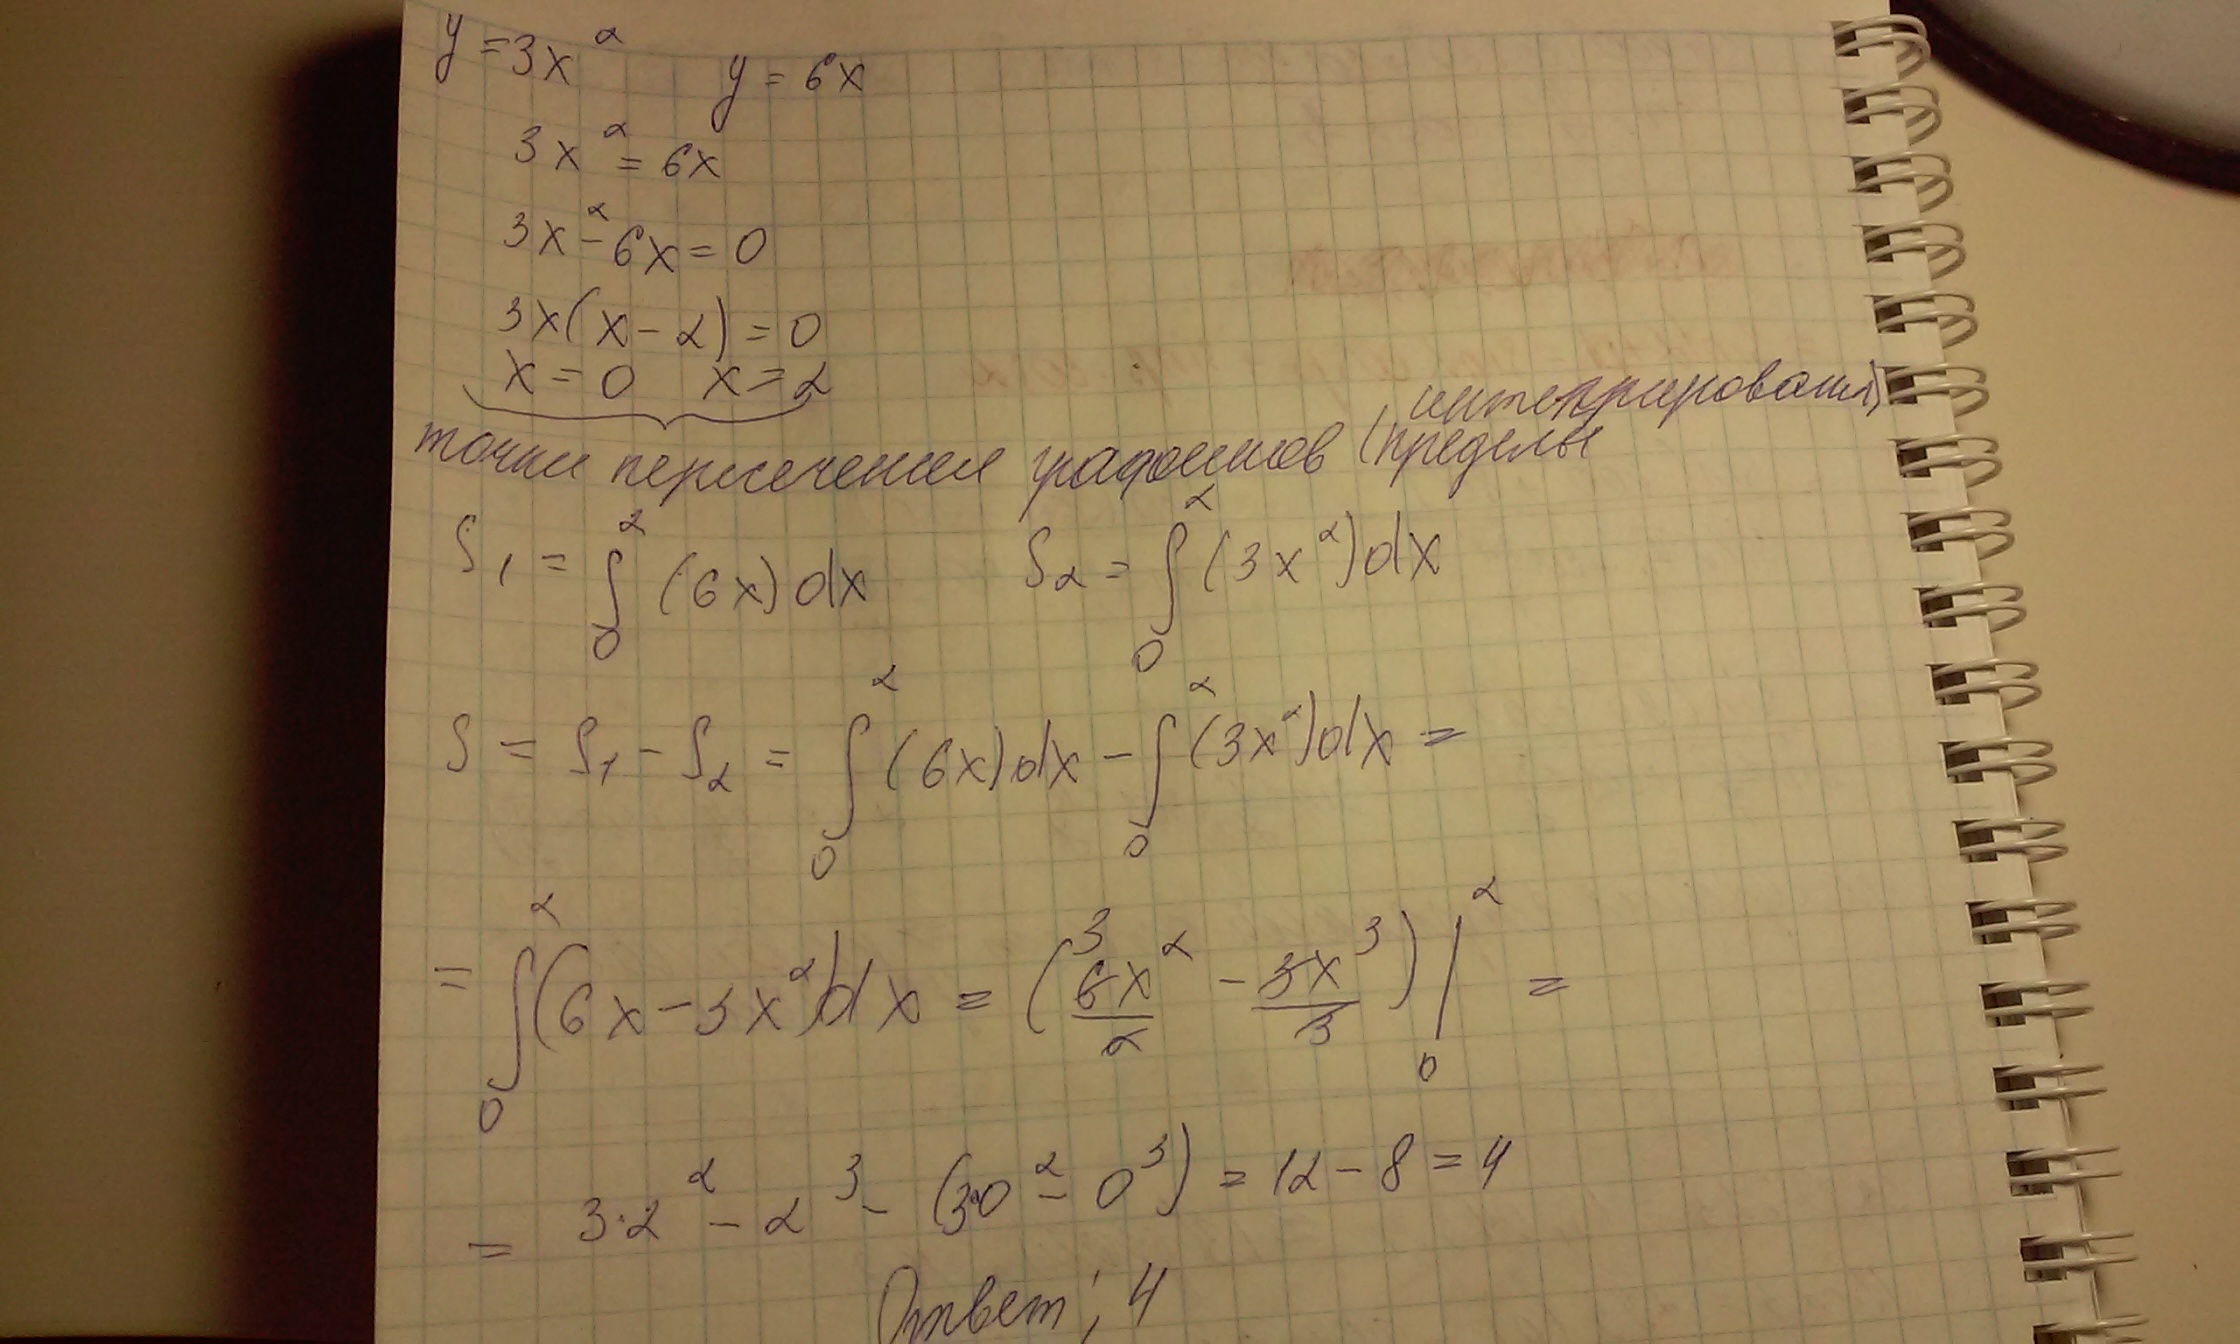 y = 3x² y = 6x
3x² = 6x
3x² - 6x = 0
3x(x - 2) = 0
x = 0 x = 2
точки пересечения графиков (пределы интегрирования)
S₁ = ∫₀² (6x)dx S₂ = ∫₀² (3x²)dx
S = S₁ - S₂ = ∫₀² (6x)dx - ∫₀² (3x²)dx =
= ∫₀² (6x - 3x²)dx = (6x²/2 - 3x³/3)|₀² =
= 3·2² - 2³ - (3·0² - 0³) = 12 - 8 = 4
Ответ: 4